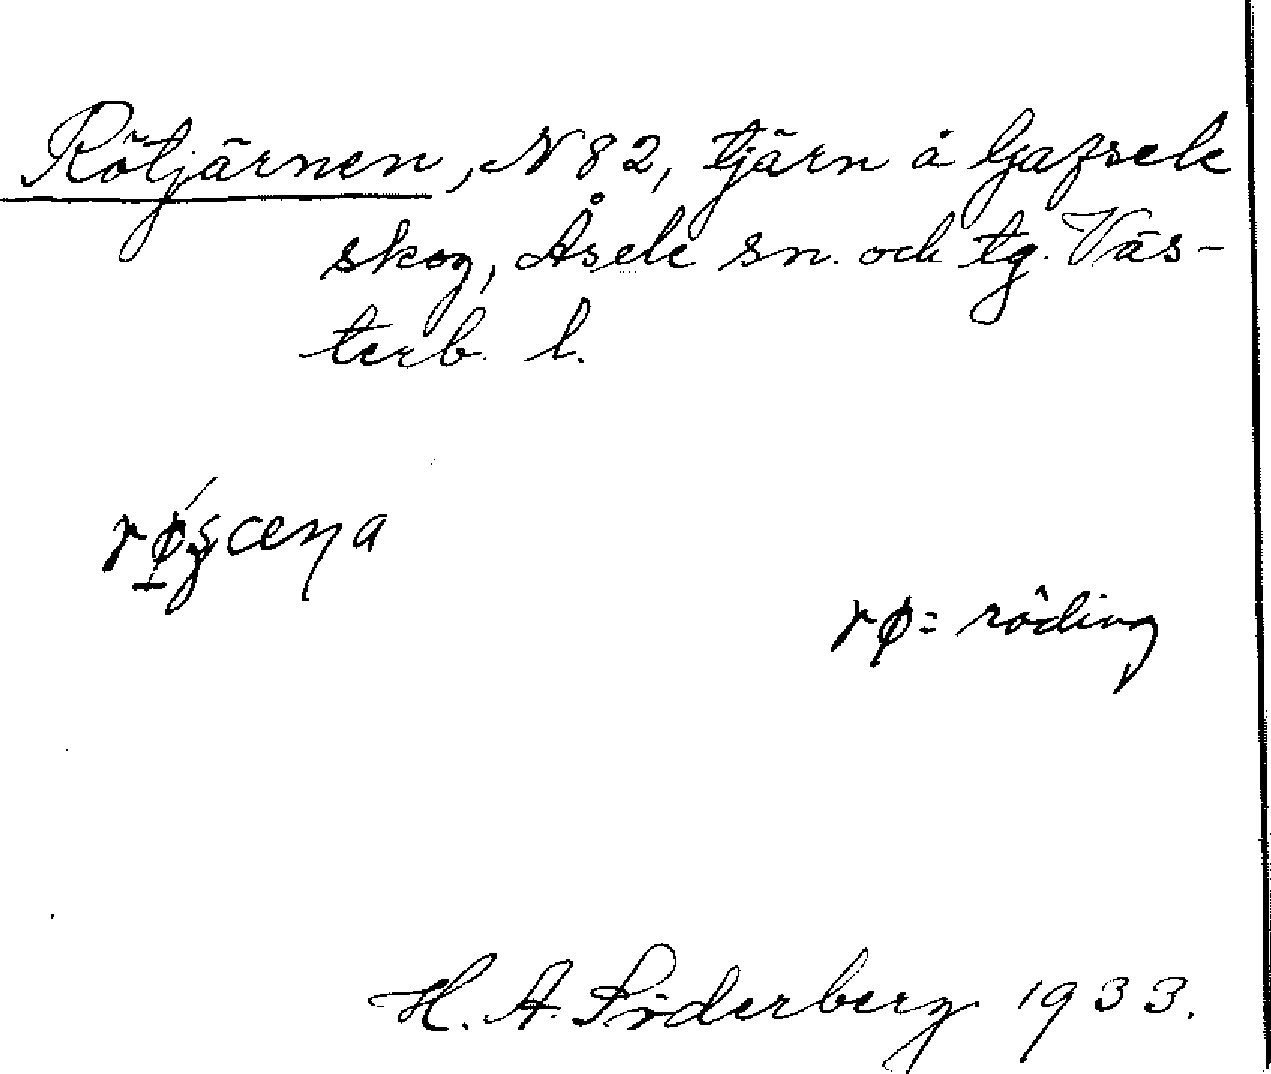 Rötjärnen, N 82, tjärn å Gafsele
skog, Åsele sn. och tg. Väs-
terb. l.
rø = röding
H. A. Söderberg 1933.